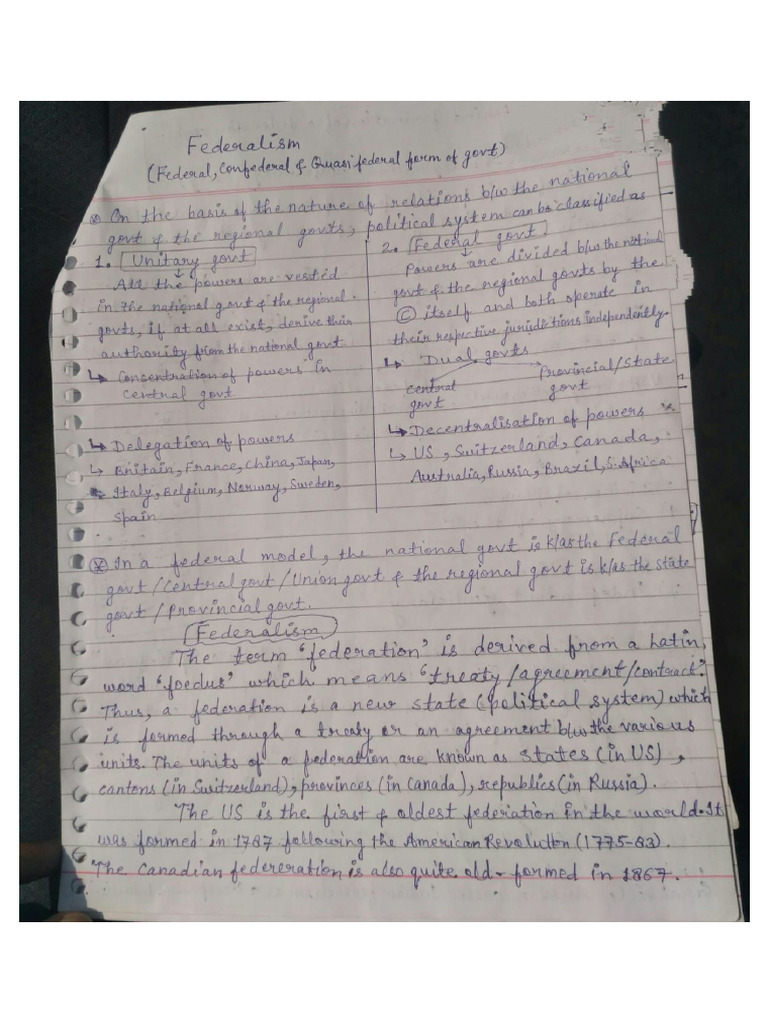 Federalism
(Federal, Confederal & Quasi federal form of govt)
On the basis of the nature of relations b/w the national
govt & the regional govts, political system can be classified as
1. Unitary govt
All the powers are vested
in the national govt & the regional
govts, if at all exist, derive their
authority from the national govt
↳ Concentration of powers in
central govt
↳ Delegation of powers
↳ Britain, France, China, Japan,
Italy, Belgium, Norway, Sweden,
Spain
2. Federal govt
Powers are divided b/w the national
govt & the regional govts by the
© itself and both operate in
their respective jurisdictions independently.
↳ Dual govts
Central
govt
Provincial/State
govt
↳ Decentralisation of powers
↳ US, Switzerland, Canada,
Australia, Russia, Brazil, S.Africa
In a federal model, the national govt is k/as the Federal
govt/Central govt/Union govt & the regional govt is k/as the state
govt/Provincial govt.
Federalism
The term 'federation' is derived from a Latin,
word 'foedus' which means 'treaty/agreement/contract'.
Thus, a federation is a new state (political system) which
is formed through a treaty or an agreement b/w the various
units. The units of a federation are known as states (in US),
cantons (in Switzerland), provinces (in Canada), republics (in Russia).
The US is the first & oldest federation in the world. It
was formed in 1787 following the American Revolution (1775-83).
The Canadian federeration is also quite old - formed in 1867.